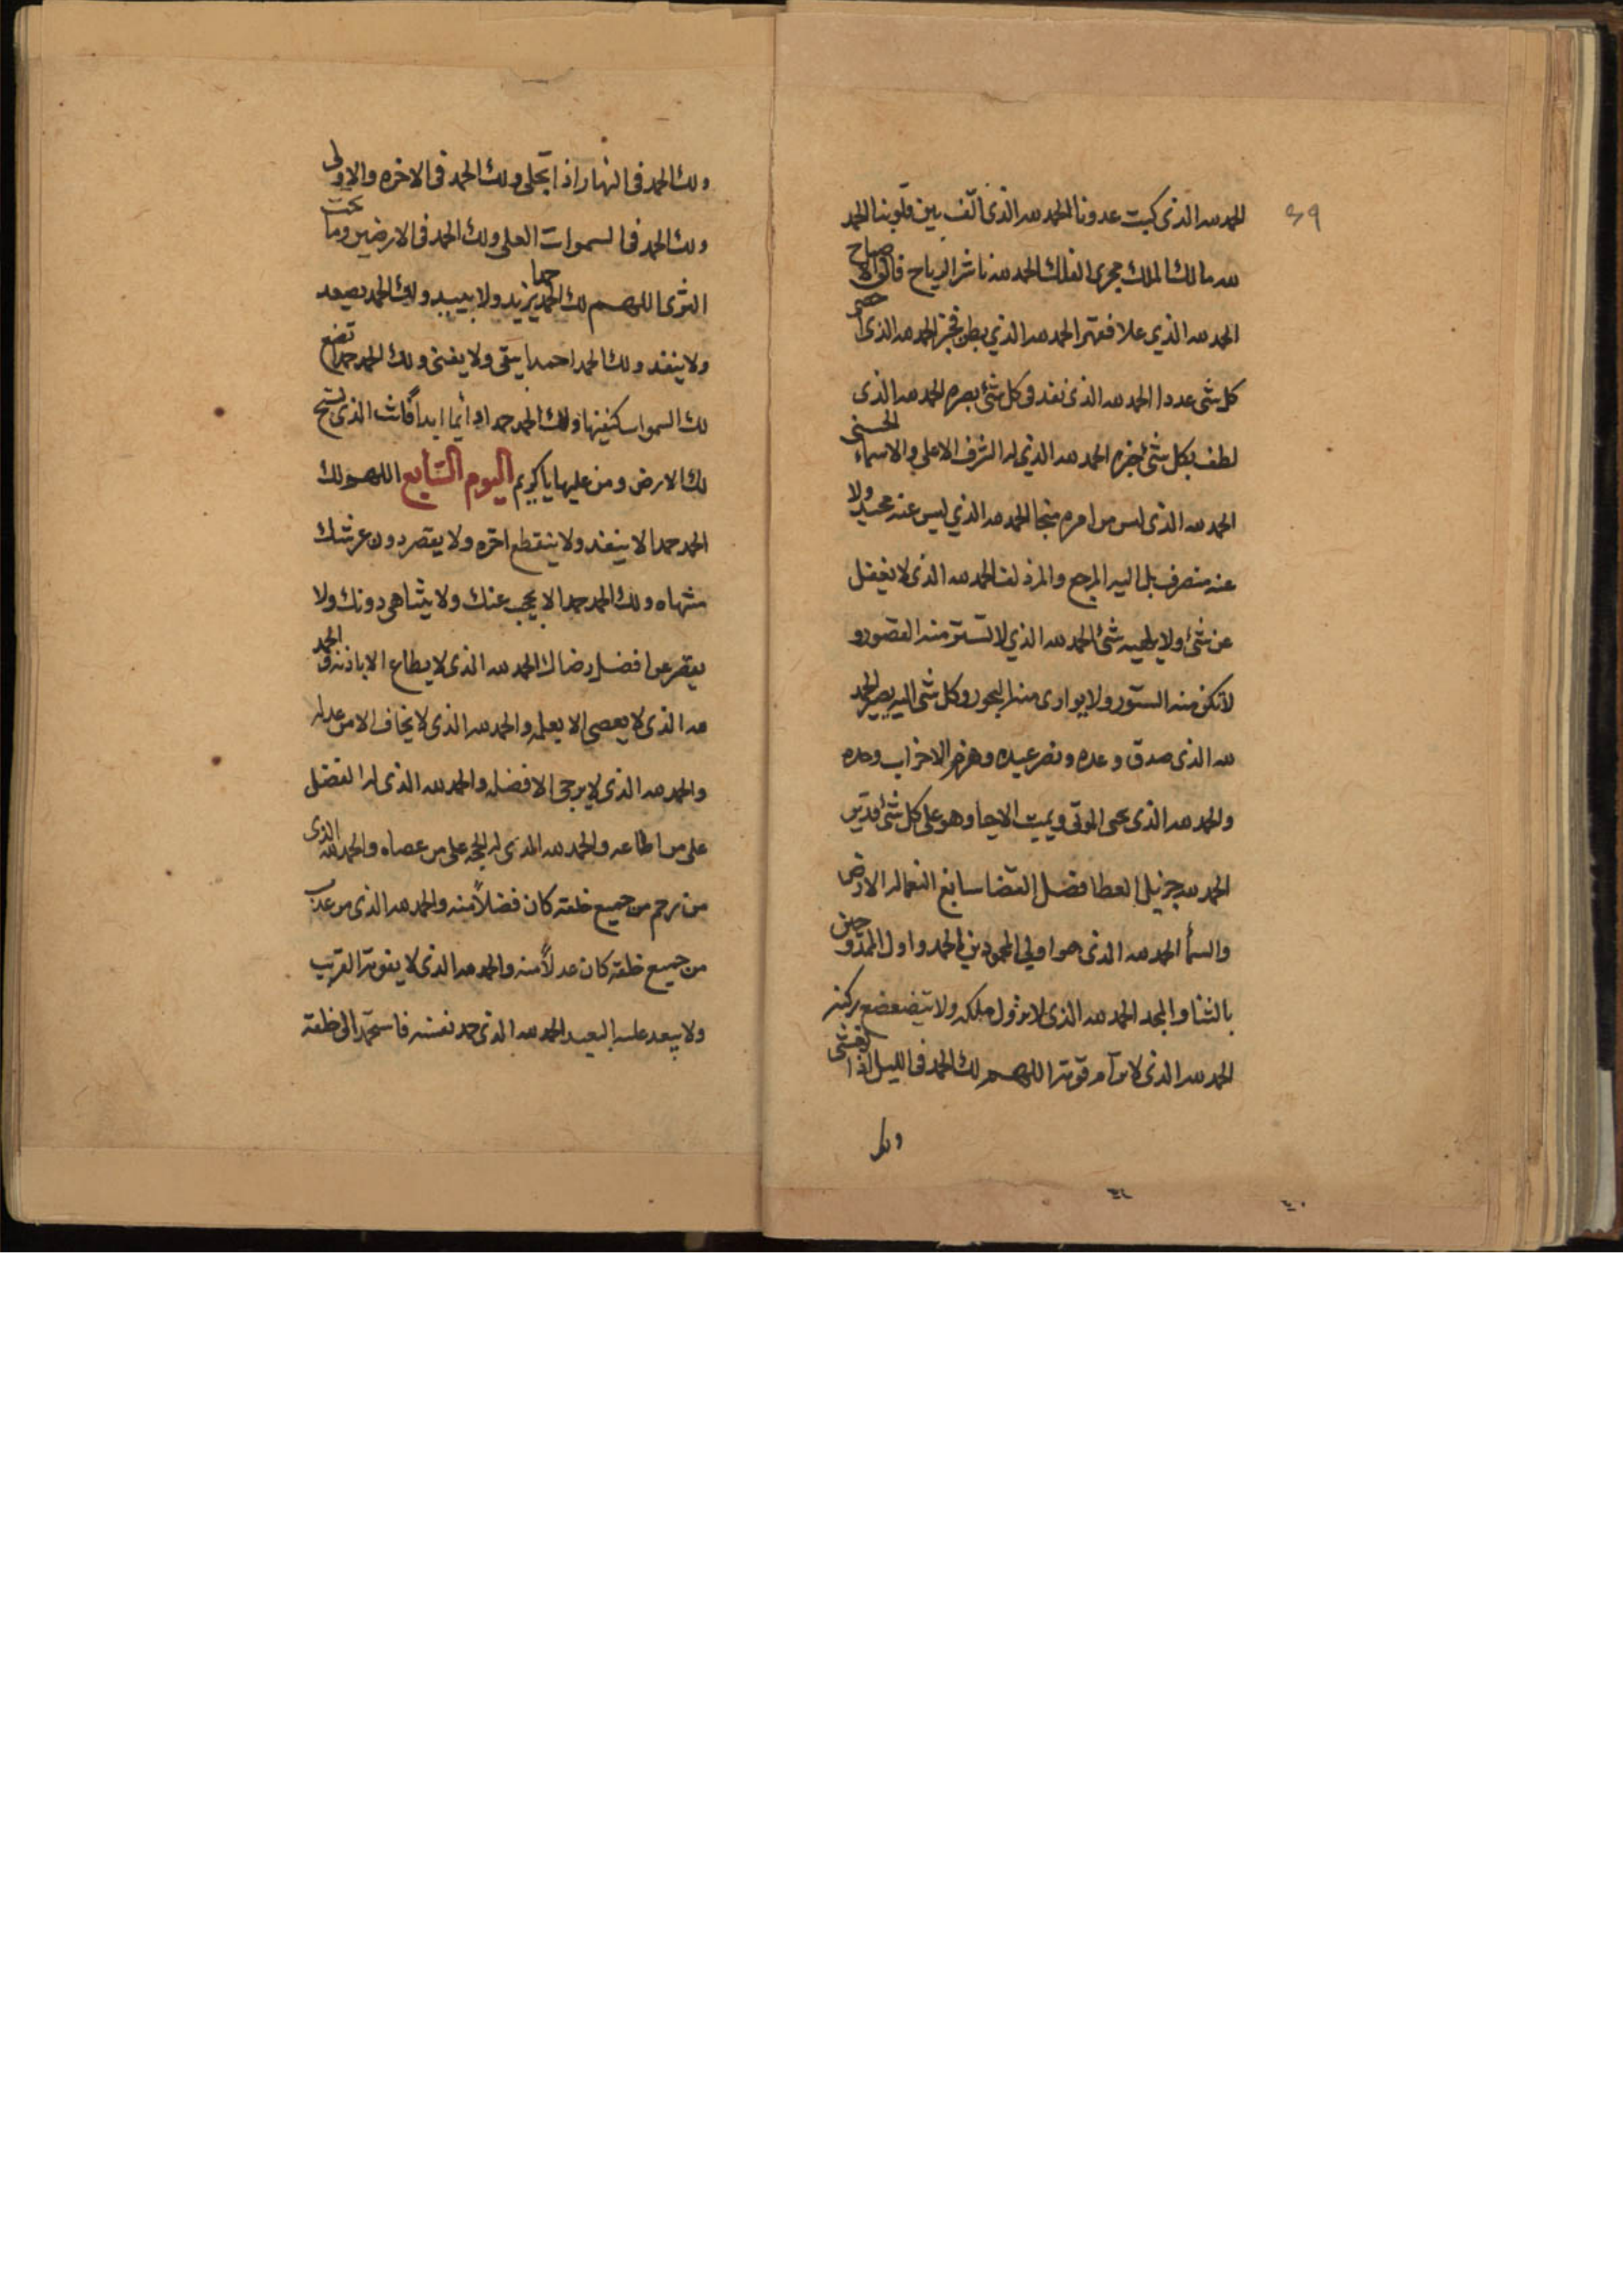 ٤٩
الحمد لله الذى كبت عدونا الحمد لله الذى الف بين قلوبنا الحمد
لله مالك الملك مجرى الفلك الحمد لله ناشر الرياح فالق الاصباح
الحمد لله الذي علا فقهر الحمد لله الذي بطن فخبر الحمد لله الذى احصى
كل شى عددا الحمد لله الذى نفذ فى كل شئ بصره الحمد لله الذى
لطف بكل شئ خبره الحمد لله الذي له الشرف الاعلى والاسماء الحسنى
الحمد لله الذى ليس من امره منجا الحمد لله الذي ليس عنه محيد ولا
عنه منصرف بل اليه المرجع والمزدلف الحمد لله الذى لا يغفل
عن شئ ولا يلهيه شئ الحمد لله الذي لا تستتر منه القصور و
لا تكن منه الستور ولا يوارى منه البحور وكل شى اليه يصير الحمد
لله الذى صدق وعده ونصر عبده وهزم الاحزاب وحده
والحمد لله الذى يحيى الموتى ويميت الاحيا وهو على كل شئ قدير
الحمد لله جزيل العطا فصل القضا سابغ النعما له الارض
والسما الحمد لله الذى هو اولي المحمودين بالحمد واولى الممدوحين
بالثنا والمجد الحمد لله الذى لا يزول ملكه ولا يتضعضع ركنه
الحمد لله الذى لا ترام قوته اللهم لك الحمد فى الليل اذا يغشى
ولك
ولك الحمد فى النهار اذا تجلى ولك الحمد فى الاخره والاولى
ولك الحمد فى السموات العلى ولك الحمد فى الارضين وما تحت
الثرى اللهم لك الحمد حمدا يزيد ولا يبيد ولك الحمد يصعد
ولا ينفد ولك الحمد احمدا يبقى ولا يفنى ولك الحمد حمدا تضع
لك السموات كنفيها ولك الحمد حمدا دائما ابدا فانت الذى تسبح
لك الارض ومن عليها يا كريم اليوم السابع اللهم لك
الحمد حمدا لا ينفد ولا ينقطع اخره ولا يقصر دون عرشك
منتهاه ولك الحمد حمدا لا يحجب عنك ولا يتناهى دونك ولا
يقصر عن افضل رضاك الحمد لله الذى لا يطاع الا باذنه والحمد
لله الذى لا يعصى الا بعلمه والحمد لله الذى لا يخاف الا من عدله
والحمد لله الذى لا يرجى الا فضله والحمد لله الذى له الفضل
على من اطاعه والحمد لله الذى له الحجه على من عصاه والحمد لله الذى
من رحم من جميع خلقه كان فضلاً منه والحمد لله الذى من عذب
من جميع خلقه كان عدلاً منه والحمد لله الذى لا يفوته القريب
ولا يبعد عليه البعيد الحمد لله الذى حمد نفسه فاستحمد الى خلقه